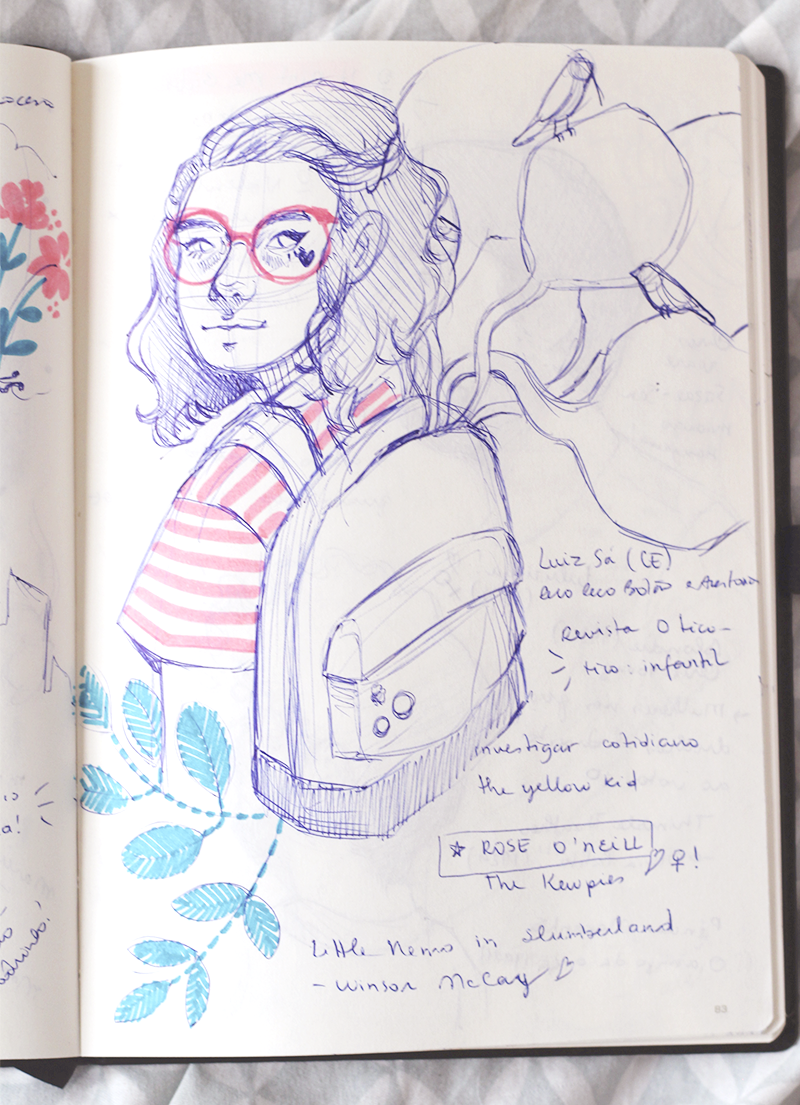 Luiz Sá (CE)
Reco Reco Bolão e Azeitona
Revista O tico-
tico: infantil
investigar cotidiano
the yellow kid
☆ ROSE O'NEILL
♡ ♀!
The Kewpies
Little Nemo in Slumberland
- Winsor McCay
83